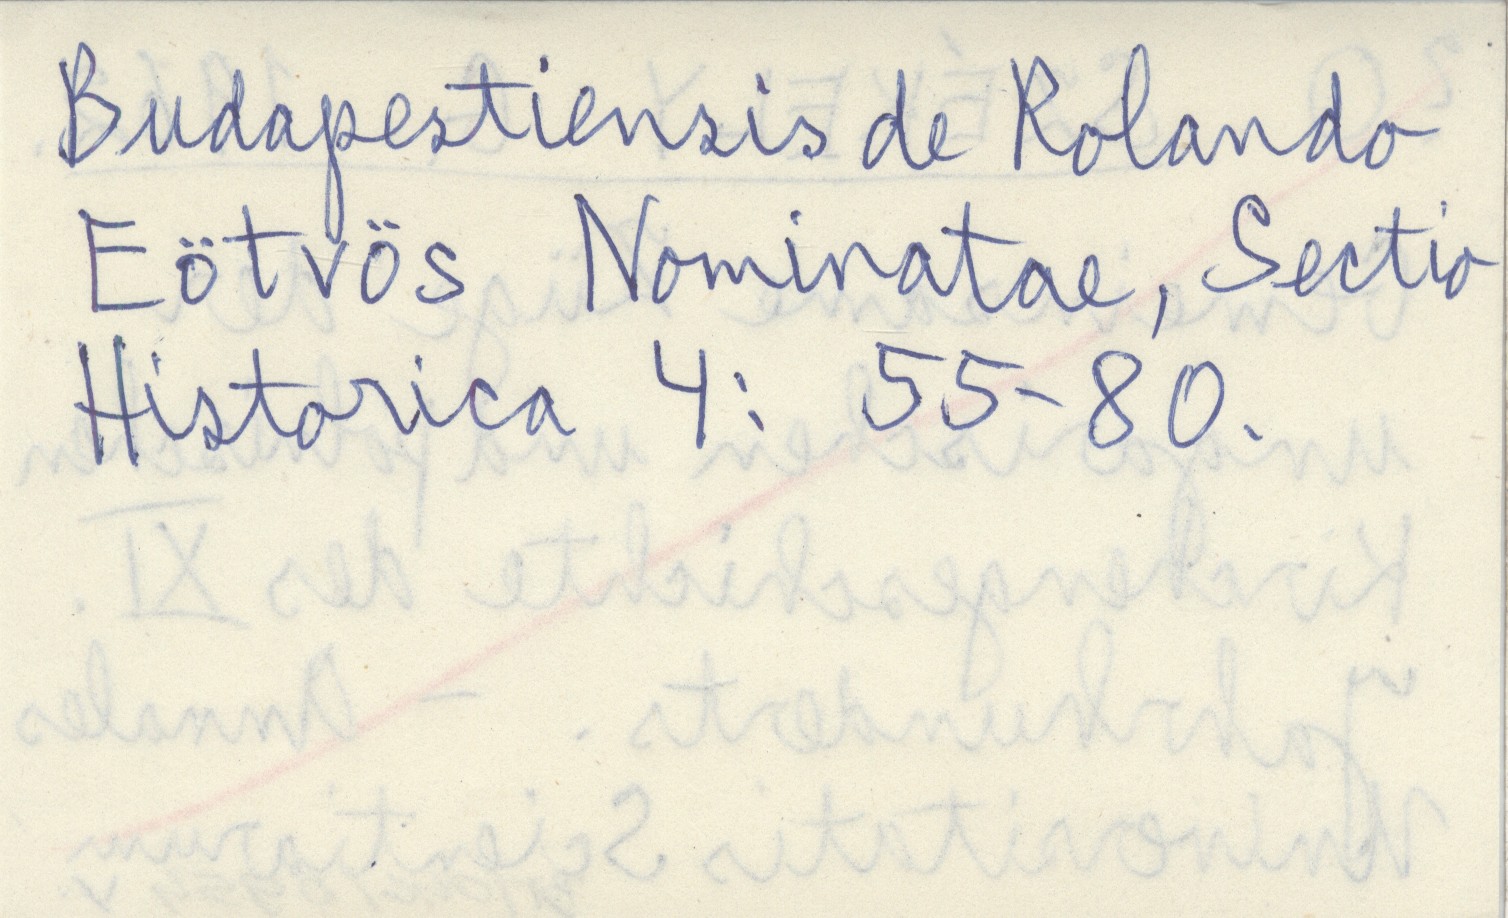 Budapestiensis de Rolando
Eötvös Nominatae, Sectio
Historica 4: 55-80.